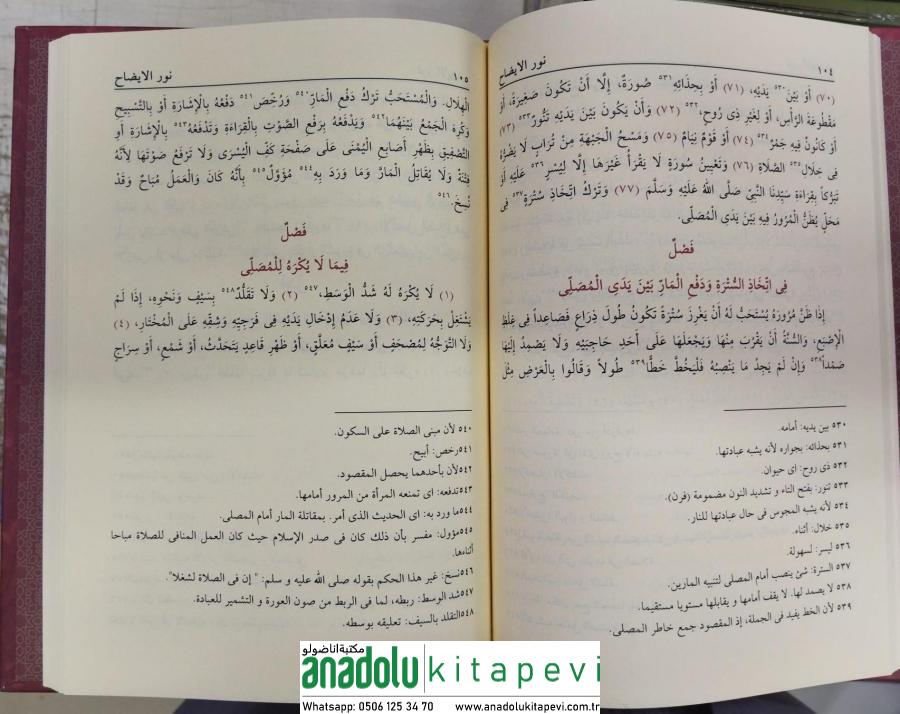 ١٠٤ نور الايضاح
(٧٠) أَوْ بَيْنَ ٥٣٠ يَدَيْهِ، (٧١) أَوْ بِحِذَائِهِ ٥٣١ صُورَةٌ، إِلَّا أَنْ تَكُونَ صَغِيرَةً، أَوْ
مَقْطُوعَةَ الرَّأْسِ، أَوْ لِغَيْرِ ذِى رُوحٍ، ٥٣٢ (٧٢) وَأَنْ يَكُونَ بَيْنَ يَدَيْهِ تَنُّورٌ ٥٣٣ (٧٣)
أَوْ كَانُونَ فِيهِ جَمْرٌ ٥٣٤ (٧٤) أَوْ قَوْمٌ نِيَامٌ (٧٥) وَمَسْحُ الْجَبْهَةِ مِنْ تُرَابٍ لَا يَضُرُّهُ
فِى خِلَالِ ٥٣٥ الصَّلَاةِ (٧٦) وَتَعْيِينُ سُورَةٍ لَا يَقْرَأُ غَيْرَهَا إِلَّا لِيُسْرٍ ٥٣٦ عَلَيْهِ أَوْ
تَبَرُّكًا بِقِرَاءَةِ سَيِّدِنَا النَّبِىِّ صَلَّى اللهُ عَلَيْهِ وَسَلَّمَ (٧٧) وَتَرْكُ اتِّخَاذِ سُتْرَةٍ ٥٣٧ فِى
مَحَلٍّ يُظَنُّ الْمُرُورُ فِيهِ بَيْنَ يَدَىِ الْمُصَلِّى.
فَصْلٌ
فِى اتِّخَاذِ السُّتْرَةِ وَدَفْعِ الْمَارِّ بَيْنَ يَدَىِ الْمُصَلِّى
إِذَا ظَنَّ مُرُورَهُ يُسْتَحَبُّ لَهُ أَنْ يَغْرِزَ سُتْرَةً تَكُونُ طُولَ ذِرَاعٍ فَصَاعِداً فِى غِلَظِ
الْإِصْبَعِ، وَالسُّنَّةُ أَنْ يَقْرُبَ مِنْهَا وَيَجْعَلَهَا عَلَى أَحَدِ حَاجِبَيْهِ وَلَا يَصْمِدُ إِلَيْهَا
صَمْداً ٥٣٨ وَإِنْ لَمْ يَجِدْ مَا يَنْصِبُهُ فَلْيَخُطَّ خَطًّا ٥٣٩ طُولاً وَقَالُوا بِالْعَرْضِ مِثْلَ
٥٣٠ بين يديه: أمامه.
٥٣١ بحذائه: بجواره لأنه يشبه عبادتها.
٥٣٢ ذى روح: اى حيوان.
٥٣٣ تنور: بفتح التاء و تشديد النون مضمومة (فرن).
٥٣٤ لأنه يشبه المجوس فى حال عبادتها للنار.
٥٣٥ خلال: أثناء.
٥٣٦ ليسر: لسهولة.
٥٣٧ السترة: شئ ينصب أمام المصلى لتنبيه المارين.
٥٣٨ لا يصمد لها. لا يقف أمامها و يقابلها مستويا مستقيما.
٥٣٩ لأن الخط يفيد فى الجملة، إذ المقصود جمع خاطر المصلى.
نور الايضاح ١٠٥
الْهِلَالِ. وَالْمُسْتَحَبُّ تَرْكُ دَفْعِ الْمَارِّ ٥٤٠ وَرُخِّصَ ٥٤١ دَفْعُهُ بِالْإِشَارَةِ أَوْ بِالتَّسْبِيحِ
وَكُرِهَ الْجَمْعُ بَيْنَهُمَا ٥٤٢ وَيَدْفَعُهُ بِرَفْعِ الصَّوْتِ بِالْقِرَاءَةِ وَتَدْفَعُهُ ٥٤٣ بِالْإِشَارَةِ أَوِ
التَّصْفِيقِ بِظَهْرِ أَصَابِعِ الْيُمْنَى عَلَى صَفْحَةِ كَفِّ الْيُسْرَى وَلَا تَرْفَعُ صَوْتَهَا لِأَنَّهُ
فِتْنَةٌ وَلَا يُقَاتِلُ الْمَارَّ وَمَا وَرَدَ بِهِ ٥٤٤ مُؤَوَّلٌ ٥٤٥ بِأَنَّهُ كَانَ وَالْعَمَلُ مُبَاحٌ وَقَدْ
نُسِخَ. ٥٤٦
فَصْلٌ
فِيمَا لَا يُكْرَهُ لِلْمُصَلِّى
(١) لَا يُكْرَهُ لَهُ شَدُّ الْوَسَطِ، ٥٤٧ (٢) وَلَا تَقَلُّدٌ ٥٤٨ بِسَيْفٍ وَنَحْوِهِ، إِذَا لَمْ
يَشْتَغِلْ بِحَرَكَتِهِ، (٣) وَلَا عَدَمُ إِدْخَالِ يَدَيْهِ فِى فَرَجِيِّهِ وَشِقِّهِ عَلَى الْمُخْتَارِ، (٤)
وَلَا التَّوَجُّهُ لِمُصْحَفٍ أَوْ سَيْفٍ مُعَلَّقٍ، أَوْ ظَهْرِ قَاعِدٍ يَتَحَدَّثُ، أَوْ شَمْعٍ، أَوْ سِرَاجٍ
٥٤٠ لأن مبنى الصلاة على السكون.
٥٤١رخص: أبيح.
٥٤٢لأن بأحدهما يحصل المقصود.
٥٤٣تدفعه: اى تمنعه المرأة من المرور أمامها.
٥٤٤ما ورد به: اى الحديث الذى أمر. بمقاتلة المار أمام المصلى.
٥٤٥مؤول: مفسر بأن ذلك كان فى صدر الإسلام حيث كان العمل المنافى للصلاة مباحا
أثناءها.
٥٤٦نسخ: غير هذا الحكم بقوله صلى الله عليه و سلم: " إن فى الصلاة لشغلا".
٥٤٧شد الوسط: ربطه، لما فى الربط من صون العورة و التشمير للعبادة.
٥٤٨التقلد بالسيف: تعليقه بوسطه.
مكتبة اناضولو
anadolu kitapevi
Whatsapp: 0506 125 34 70 www.anadolukitapevi.com.tr